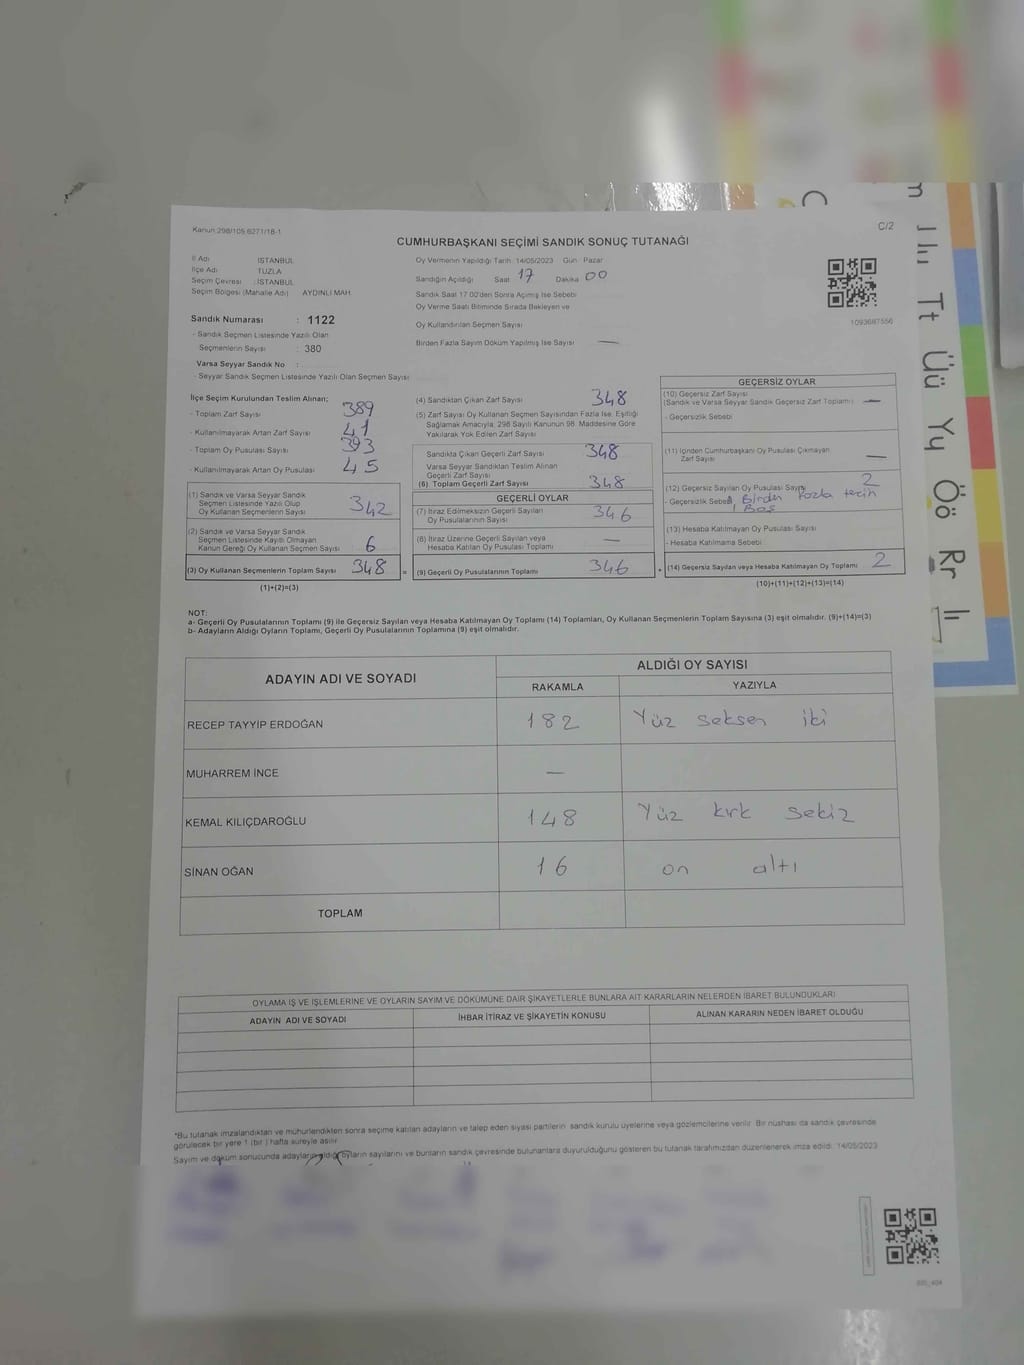 Kanun:298/105,6271/18-1
C/2
CUMHURBAŞKANI SEÇİMİ SANDIK SONUÇ TUTANAĞI
İl Adı : İSTANBUL
İlçe Adı : TUZLA
Seçim Çevresi : İSTANBUL
Seçim Bölgesi (Mahalle Adı) : AYDINLI MAH.
Sandık Numarası : 1122
- Sandık Seçmen Listesinde Yazılı Olan
Seçmenlerin Sayısı : 380
Varsa Seyyar Sandık No :
- Seyyar Sandık Seçmen Listesinde Yazılı Olan Seçmen Sayısı
Oy Vermenin Yapıldığı Tarih: 14/05/2023 Gün: Pazar
Sandığın Açıldığı Saat 17 Dakika 00
Sandık Saat 17.00'den Sonra Açılmış İse Sebebi
Oy Verme Saati Bitiminde Sırada Bekleyen ve
Oy Kullandırılan Seçmen Sayısı
Birden Fazla Sayım Döküm Yapılmış İse Sayısı —
1093687556
İlçe Seçim Kurulundan Teslim Alınan;
- Toplam Zarf Sayısı 389
- Kullanılmayarak Artan Zarf Sayısı 41
- Toplam Oy Pusulası Sayısı 393
- Kullanılmayarak Artan Oy Pusulası 45
(1) Sandık ve Varsa Seyyar Sandık
Seçmen Listesinde Yazılı Olup
Oy Kullanan Seçmenlerin Sayısı 342
(2) Sandık ve Varsa Seyyar Sandık
Seçmen Listesinde Kayıtlı Olmayan
Kanun Gereği Oy Kullanan Seçmen Sayısı 6
(3) Oy Kullanan Seçmenlerin Toplam Sayısı 348 =
(1)+(2)=(3)
(4) Sandıktan Çıkan Zarf Sayısı 348
(5) Zarf Sayısı Oy Kullanan Seçmen Sayısından Fazla İse, Eşitliği
Sağlamak Amacıyla, 298 Sayılı Kanunun 98. Maddesine Göre
Yakılarak Yok Edilen Zarf Sayısı
Sandıkta Çıkan Geçerli Zarf Sayısı 348
Varsa Seyyar Sandıktan Teslim Alınan
Geçerli Zarf Sayısı
(6) Toplam Geçerli Zarf Sayısı 348
GEÇERLİ OYLAR
(7) İtiraz Edilmeksizin Geçerli Sayılan
Oy Pusulalarının Sayısı 346
(8) İtiraz Üzerine Geçerli Sayılan veya
Hesaba Katılan Oy Pusulası Toplamı —
(9) Geçerli Oy Pusulalarının Toplamı 346 +
GEÇERSİZ OYLAR
(10) Geçersiz Zarf Sayısı
(Sandık ve Varsa Seyyar Sandık Geçersiz Zarf Toplamı) —
- Geçersizlik Sebebi
(11) İçinden Cumhurbaşkanı Oy Pusulası Çıkmayan
Zarf Sayısı —
(12) Geçersiz Sayılan Oy Pusulası Sayısı 2
- Geçersizlik Sebebi 1 Birden fazla tercih
1 Boş
(13) Hesaba Katılmayan Oy Pusulası Sayısı
- Hesaba Katılmama Sebebi
(14) Geçersiz Sayılan veya Hesaba Katılmayan Oy Toplamı 2
(10)+(11)+(12)+(13)=(14)
NOT:
a- Geçerli Oy Pusulalarının Toplamı (9) ile Geçersiz Sayılan veya Hesaba Katılmayan Oy Toplamı (14) Toplamları, Oy Kullanan Seçmenlerin Toplam Sayısına (3) eşit olmalıdır. (9)+(14)=(3)
b- Adayların Aldığı Oyların Toplamı, Geçerli Oy Pusulalarının Toplamına (9) eşit olmalıdır.
ADAYIN ADI VE SOYADI
ALDIĞI OY SAYISI
RAKAMLA YAZIYLA
RECEP TAYYİP ERDOĞAN 182 Yüz seksen iki
MUHARREM İNCE —
KEMAL KILIÇDAROĞLU 148 Yüz kırk sekiz
SİNAN OĞAN 16 on altı
TOPLAM
OYLAMA İŞ VE İŞLEMLERİNE VE OYLARIN SAYIM VE DÖKÜMÜNE DAİR ŞİKAYETLERLE BUNLARA AİT KARARLARIN NELERDEN İBARET BULUNDUKLARI
ADAYIN ADI VE SOYADI İHBAR İTİRAZ VE ŞİKAYETİN KONUSU ALINAN KARARIN NEDEN İBARET OLDUĞU
*Bu tutanak imzalandıktan ve mühürlendikten sonra seçime katılan adayların ve talep eden siyasi partilerin sandık kurulu üyelerine veya gözlemcilerine verilir. Bir nüshası da sandık çevresinde
görülecek bir yere 1 (bir) hafta süreyle asılır.
Sayım ve döküm sonucunda adayların aldığı oyların sayılarını ve bunların sandık çevresinde bulunanlara duyurulduğunu gösteren bu tutanak tarafımızdan düzenlenerek imza edildi. 14/05/2023
Tt
Üü
Yy
Öö
Rr